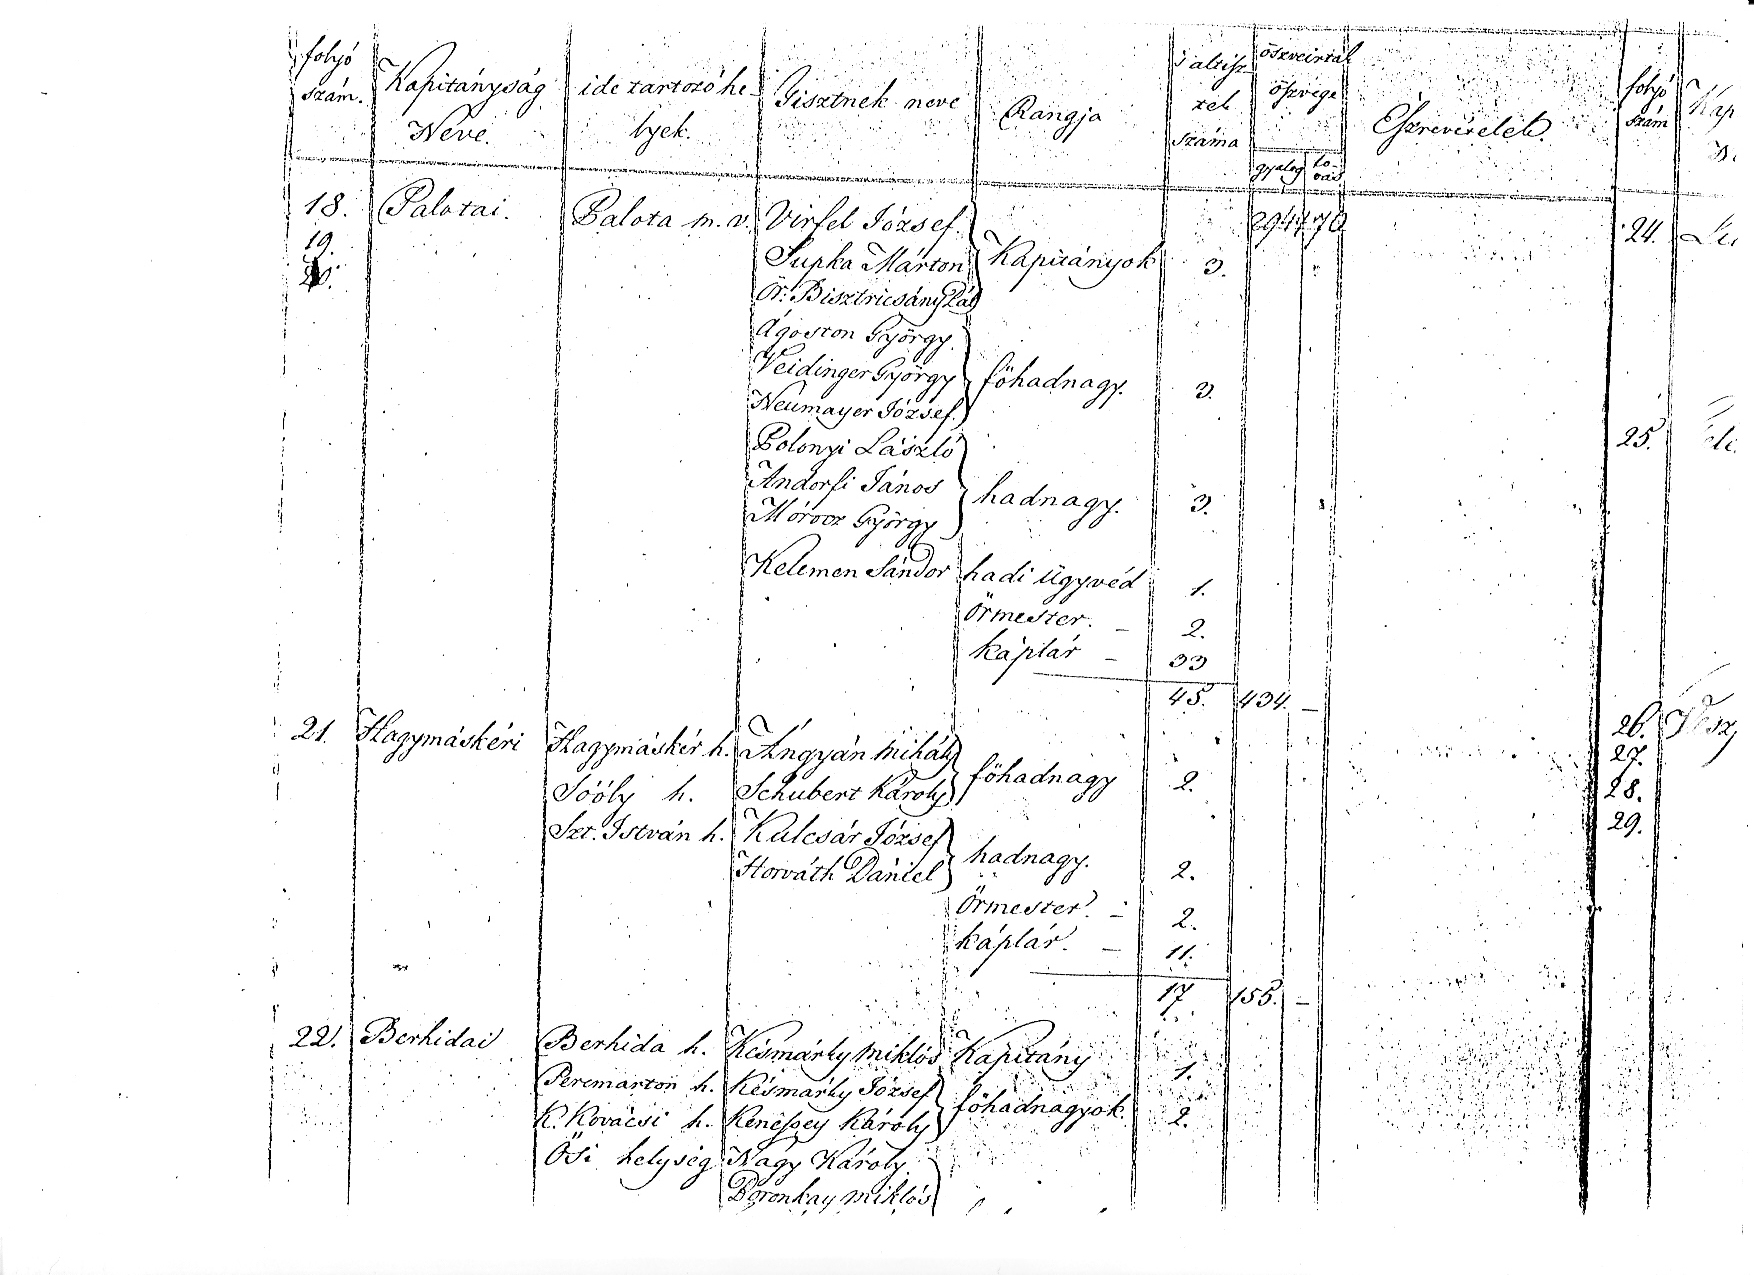 folyó szám. Kapitányság Neve. ide tartozó helyek. Tisztnek neve Rangja altisztek száma öszveírtak öszvege gyalog lovas Észrevételek. folyó szám
18. Palotai. Palota m. v. Virfel József. 70
19. Supka Márton Kapitányok 3.
20. Ör: Bisztricsány Pál
Ágoston György.
Veidinger György főhadnagy. 3.
Neumayer József.
Polonyi László
Andorfi János hadnagy. 3.
Mórocz György
Kelemen Sándor hadi ügyvéd 1.
Örmester. — 2.
káplár — 33
45. 434. —
21. Hagymáskéri Hagymáskér h. Angyán Mihály
Sóóly h. Schubert Károly főhadnagy 2.
Szt. István h. Kulcsár József
Horváth Dániel hadnagy. 2.
Örmester. — 2.
káplár. — 11.
17. 155. —
22. Berhidai Berhida h. Késmárky Miklós Kapitány 1.
Peremarton h. Késmárky József
K. Kovácsi h. Kenessey Károly főhadnagyok. 2.
Ősi helység Nagy Károly
Boronkay Miklós
24.
25.
26.
27.
28.
29.